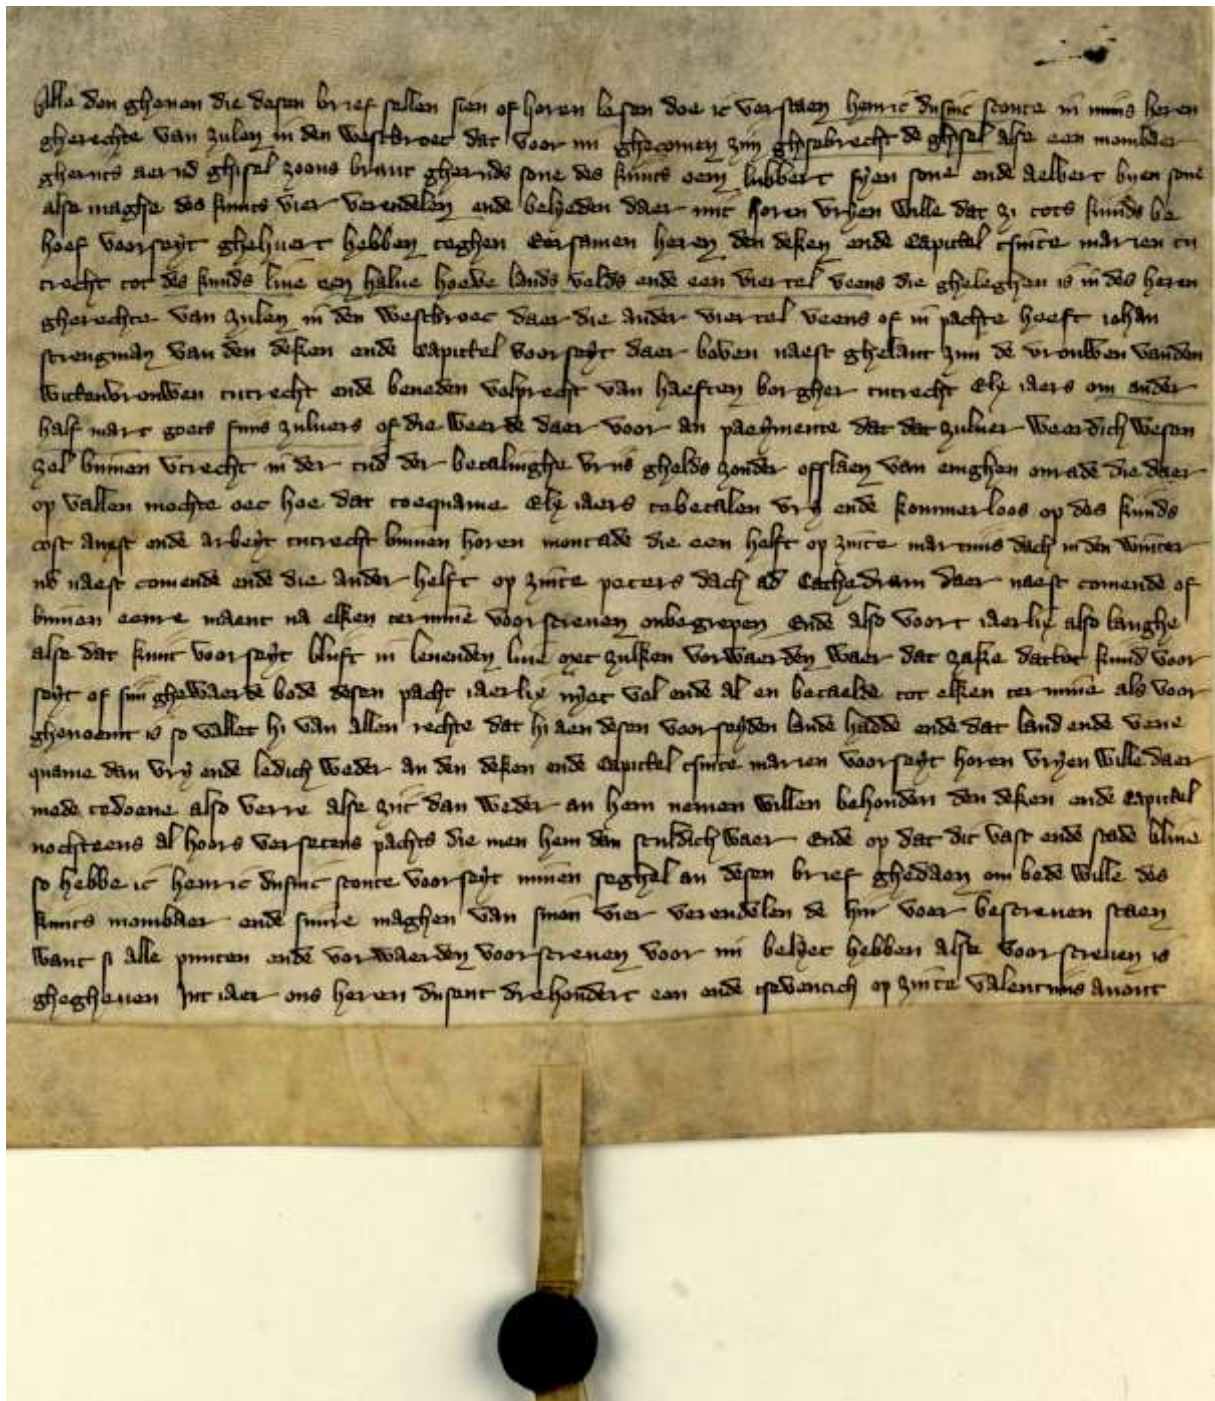 Alle den ghenen die desen brief sellen sien of horen lesen doe ic verstaen henric dusinc sconte in mins heren
gherechte van zulen in den westbroec dat voor mi ghecomen zijn ghisebrecht de ghisel alse een mombaer
ghernts aernd ghisel zoons brant ghernds sone des kints oem lubbert fyen sone ende aelbert buen sone
alse maghe des kints vier verendelen ende belyeden daer mit horen vryen wille dat zi tots kinds be
hoef voorseyt ghehuert hebben teghen eersamen heren den deken ende capittel tsinte marien tu
trecht tot des kinds liue een halue hoeve lands velds ende een viertel veens die gheleghen is in des heren
gherechte van zulen in den westbroec daer die ander viertel veens of in pachte heeft iohan
strengman van den deken ende capittel voorseyt daer boven naest ghelant zijn de vrouwen vanden
wittenvrouwen tutrecht ende beneden volprecht van haeften borgher tutrecht elx iaers om ander
half marc goets fijns zuluers of die weerde daer voor an payemente dat dat zuluer weerdich wesen
zel binnen vtrecht in der tijd der betalinghe vrijs ghelds zonder offlaen van enighen onrade die daer
op vallen mochte oec hoe dat toequame elx iaers tebetalen vry ende kommerloos op des kinds
cost anxst ende arbeyt tutrecht binnen horen montade die een helft op zinte martijns dach in den winter
nv naest comende ende die ander helft op zinte peters dach ad cathedram daer naest comende of
binnen eenre maent na elken termine voorscreuen onbegrepen Ende also voort iaerlix also langhe
alse dat kint voorseyt blijft in leuenden liue met zulken vorwaerden waer dat zake dattet kind voor
seyt of sijn ghewaerde bode desen pacht iaerlix nyet vol ende al en betaelde tot elken termine als voor
ghenoemt is so vallet hi van allen rechte dat hi aen desen voorseyden lande hadde ende dat land ende vene
quame dan vry ende ledich weder an den deken ende capittel tsinte marien voorseyt horen vryen wille daer
mede tedoene also verre alse zijt dan weder an hem nemen willen behouden den deken ende capittel
nochteens al hoors versetens pachts die men hem dan sculdich waer Ende op dat dit vast ende stade bliue
so hebbe ic henric dusinc sconte voorseyt minen seghel an desen brief ghedaen om bede wille des
kints mombaer ende sinre maghen van sinen vier verendelen de hir voer bescreuen staen
want si alle punten ende vorwaerden voorscreuen voor mi belyet hebben alse voorscreuen is
ghegheuen Int iaer ons heren dusent drehondert een ende tseventich op zinte valentijns auont